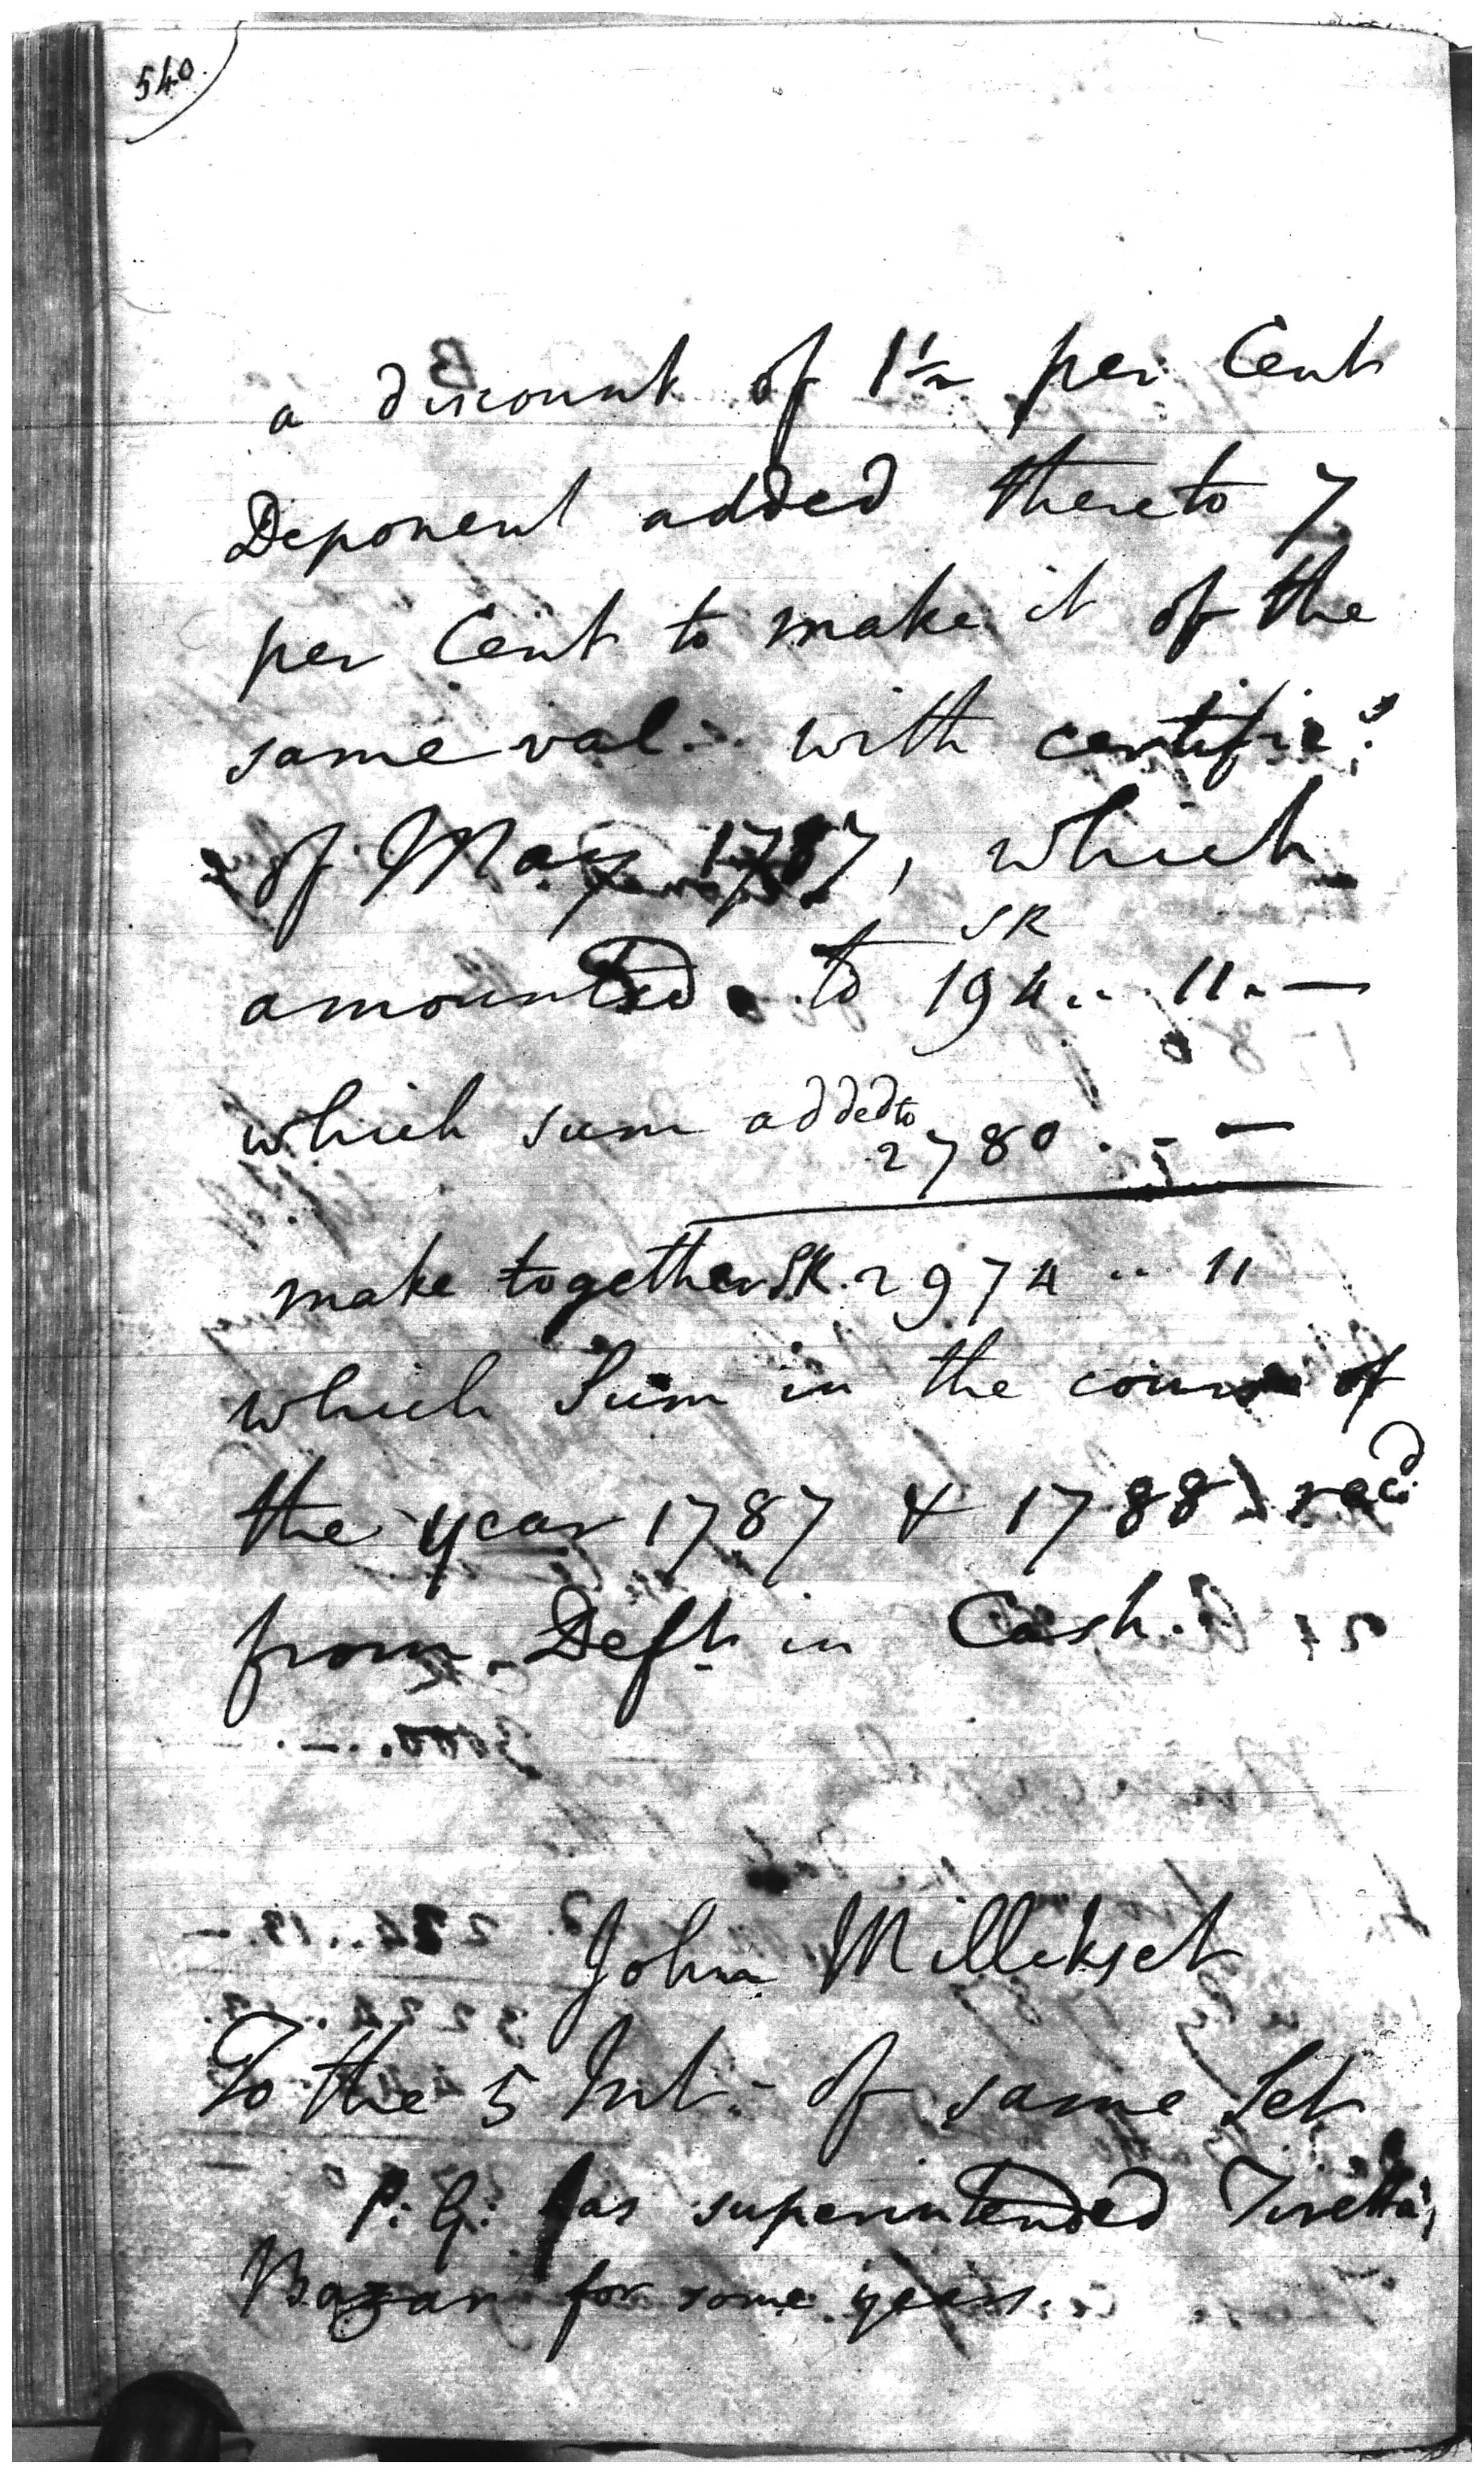 540.
a discount of 1½ per Cent
Deponent added thereto 7
per Cent to make it of the
same val:- with certific:s
of May 1787, which
SR
amounted to 194.. 11.—
which sum added to
2780 . - —
make together SR. 2974 .. 11
which Sum in the course of
the year 1787 & 1788 recd.
from Deft. in Cash.
John Millikset
To the 5 Int:- of same Set
P: G: has superintended Tiretta's
Bazar for some years.